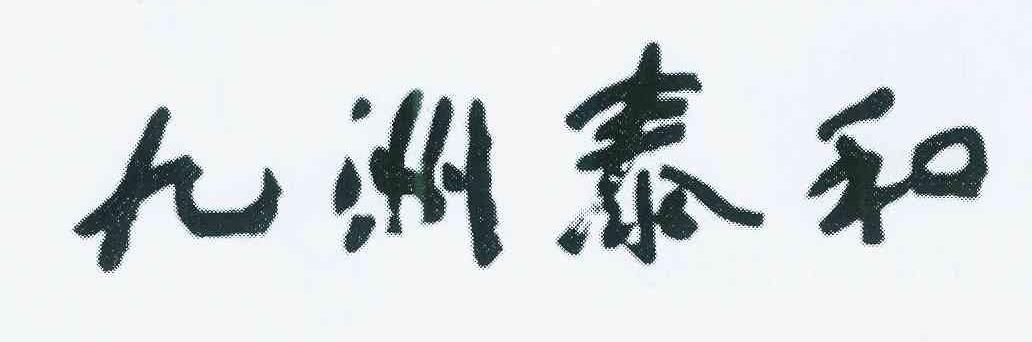 九洲泰和